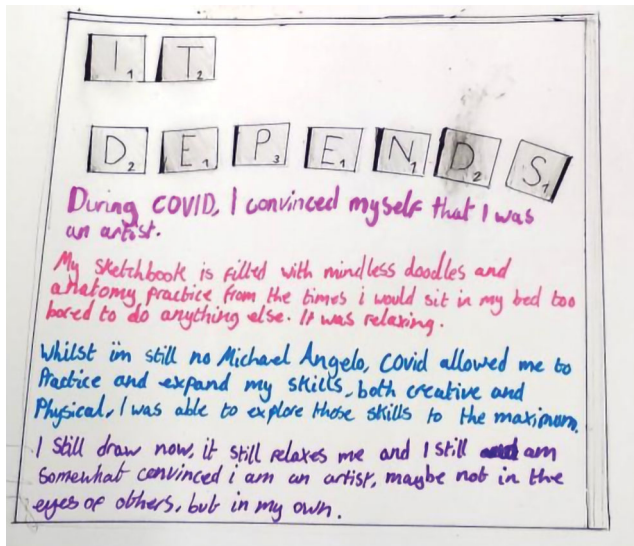 I1 T2
D2 E1 P3 E1 N1 D2 S1
During COVID, I convinced myself that I was
an artist.
My sketchbook is filled with mindless doodles and
anatomy practice from the times i would sit in my bed too
bored to do anything else. It was relaxing.
Whilst i'm still no Michael Angelo, covid allowed me to
Practice and expand my skills, both creative and
Physical, I was able to explore those skills to the maximum.
I still draw now, it still relaxes me and I still am
somewhat convinced i am an artist, maybe not in the
eyes of others, but in my own.